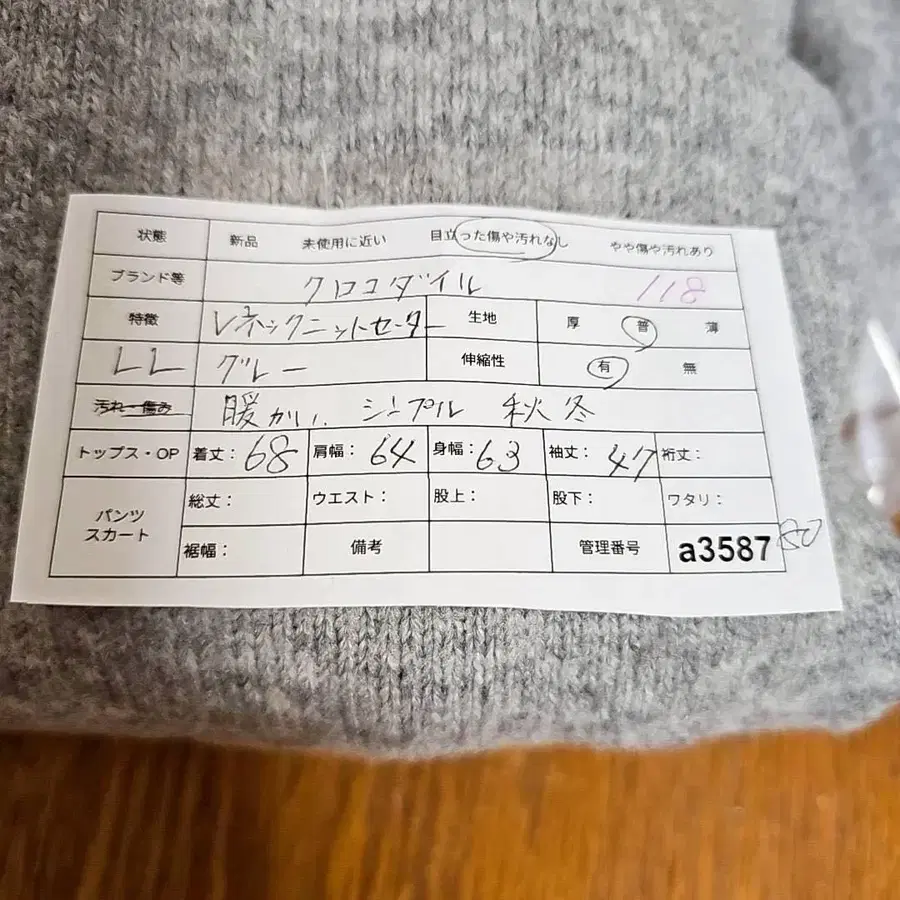 状態 新品 未使用に近い 目立った傷や汚れなし やや傷や汚れあり
ブランド等 クロコダイル 118
特徴 Vネックニットセーター 生地 厚 普 薄
LL グレー 伸縮性 有 無
汚れ・傷み 暖かい、シンプル 秋冬
トップス・OP 着丈：68 肩幅：64 身幅：63 袖丈：47 裄丈：
パンツ スカート 総丈： ウエスト： 股上： 股下： ワタリ：
裾幅： 備考 管理番号 a3587 80